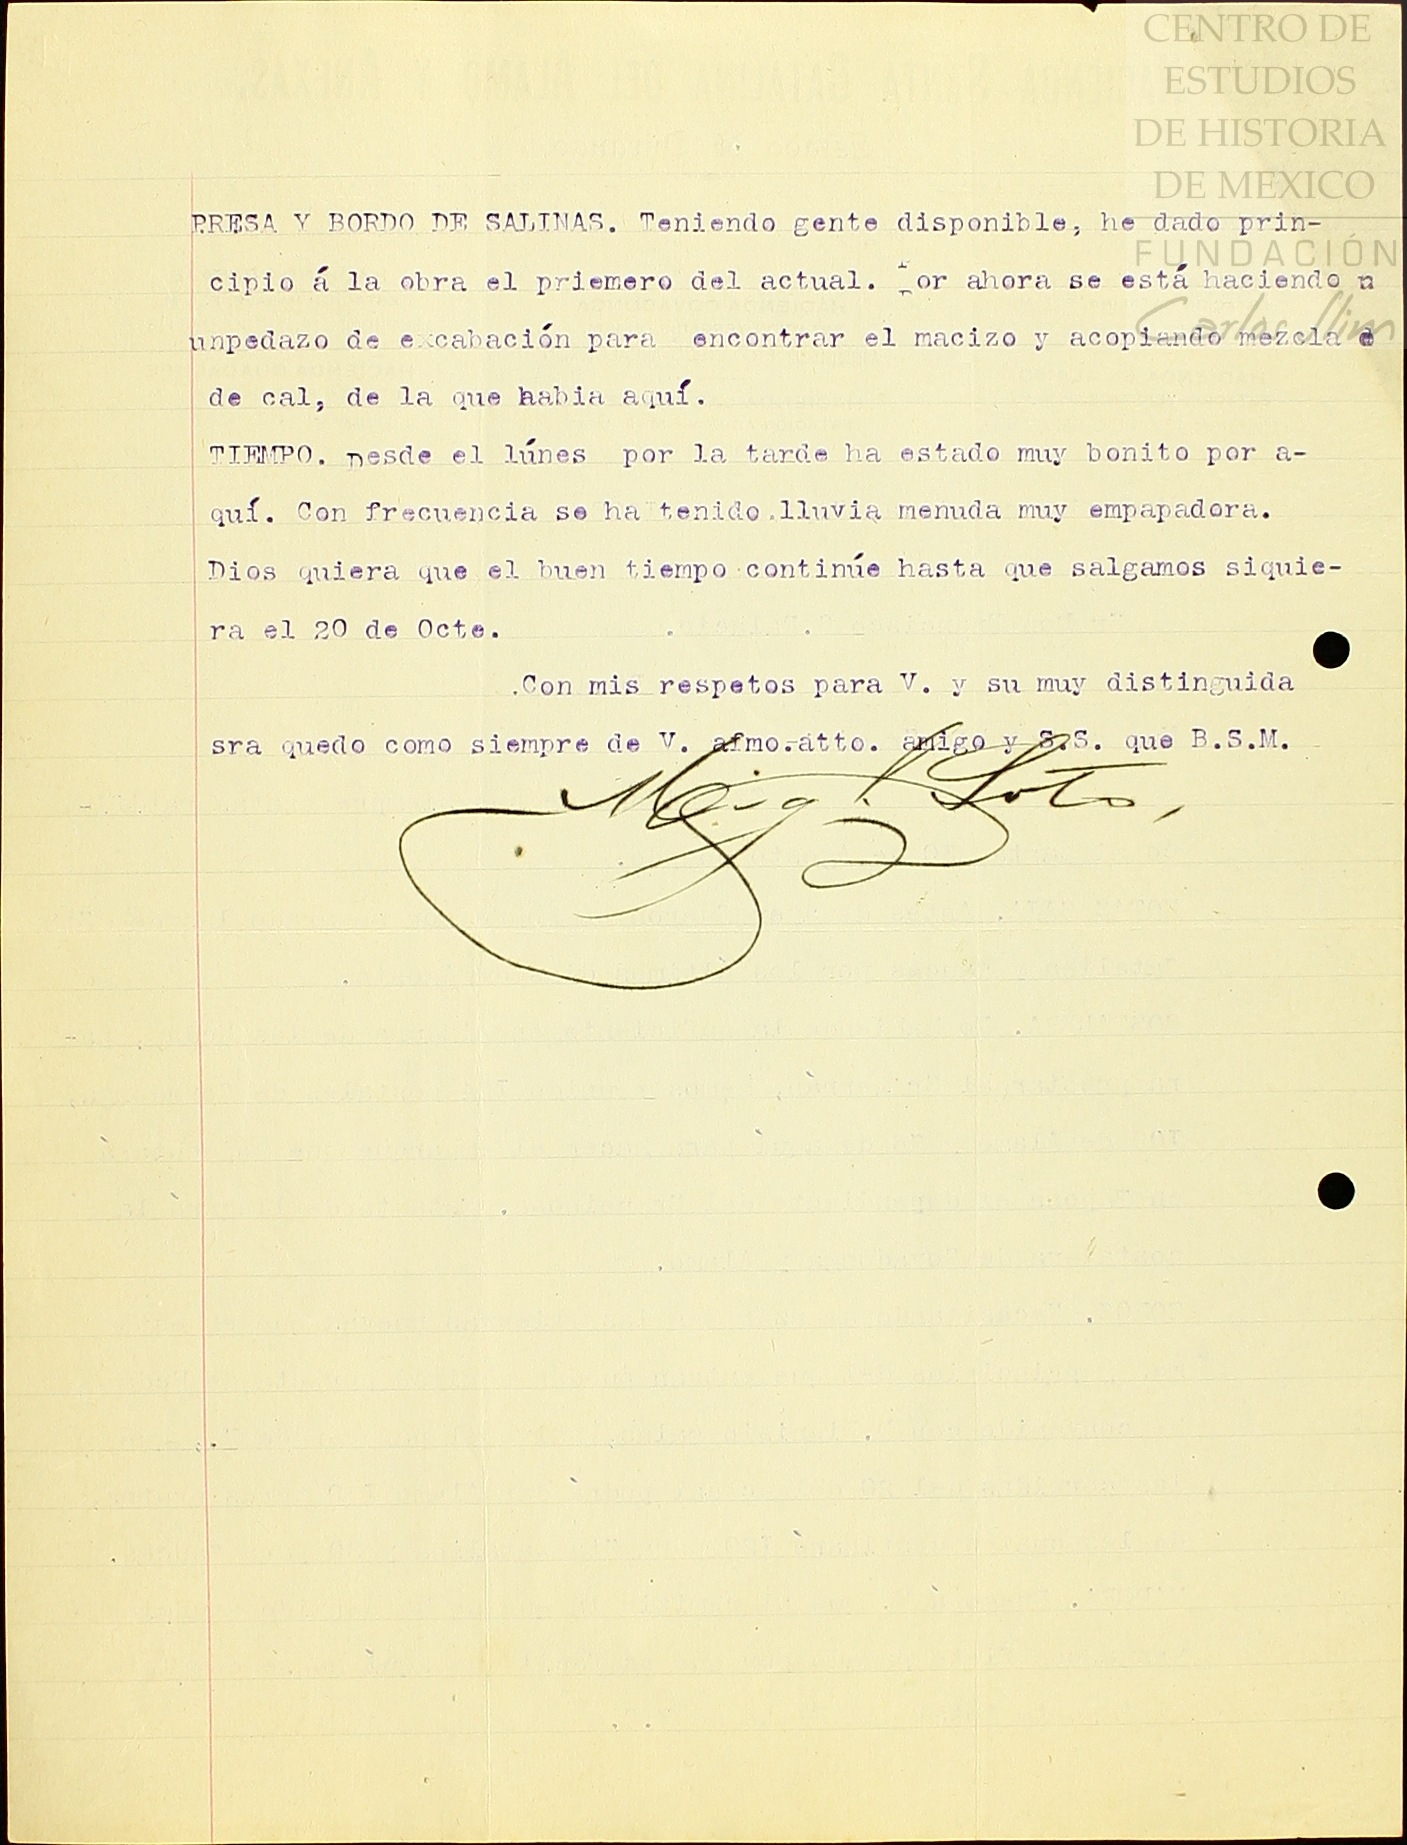 CENTRO DE
ESTUDIOS
DE HISTORIA
DE MEXICO
FUNDACIÓN
Carlos Slim
PRESA Y BORDO DE SALINAS. Teniendo gente disponible, he dado prin-
cipio á la obra el priemero del actual. Por ahora se está haciendo n
unpedazo de excabación para encontrar el macizo y acopiando mezcla d
de cal, de la que habia aquí.
TIEMPO. Desde el lúnes por la tarde ha estado muy bonito por a-
quí. Con frecuencia se ha tenido lluvia menuda muy empapadora.
Dios quiera que el buen tiempo continúe hasta que salgamos siquie-
ra el 20 de Octe.
.Con mis respetos para V. y su muy distinguida
sra quedo como siempre de V. afmo.atto. amigo y S.S. que B.S.M.
Soto,